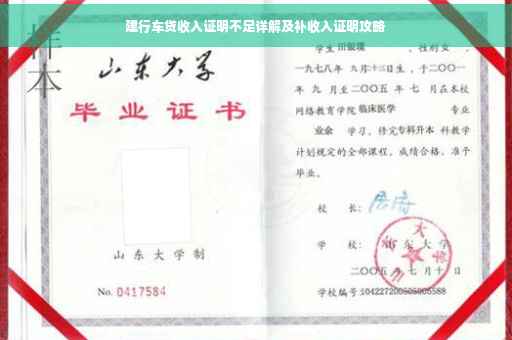 建行车贷收入证明不足详解及补收入证明攻略
样本
山东大学
毕业证书
山东大学制
No. 0417584
学生 田银環 ,性别女 ,
一九七八年 九月十三日生,于二〇〇一
年 九 月至二〇〇五 年 七 月在本校
网络教育学院 临床医学 专业
业余 学习,修完专科升本 科教学
计划规定的全部课程,成绩合格,准予
毕业。
校 长:
学 校: 山东大学
二〇〇五 年 七 月 十 日
学校编号:104227200505005588